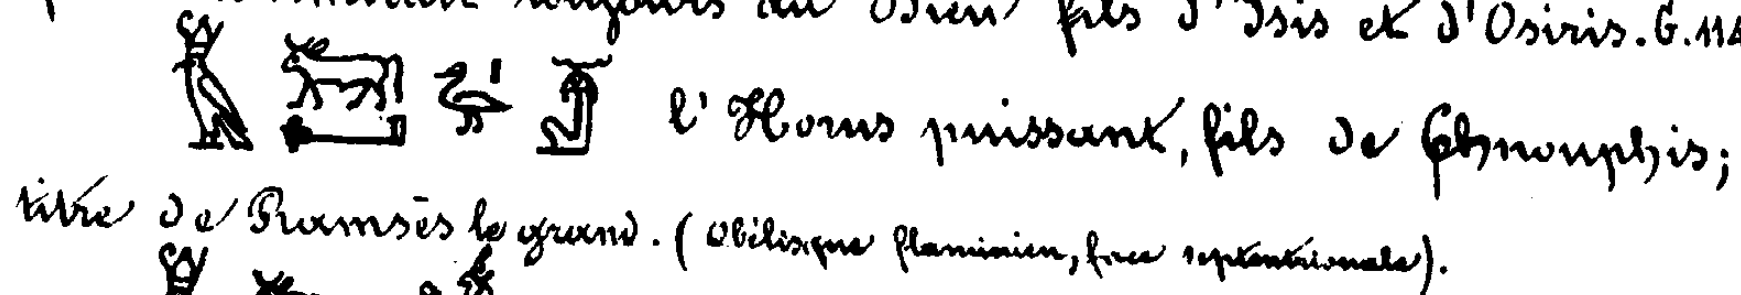 toujours au Dieu fils d'Isis et d'Osiris. G. 114
l'Horus puissant, fils de Chnouphis;
titre de Ramsès le grand. (Obélisque flaminien, face septentrionale).